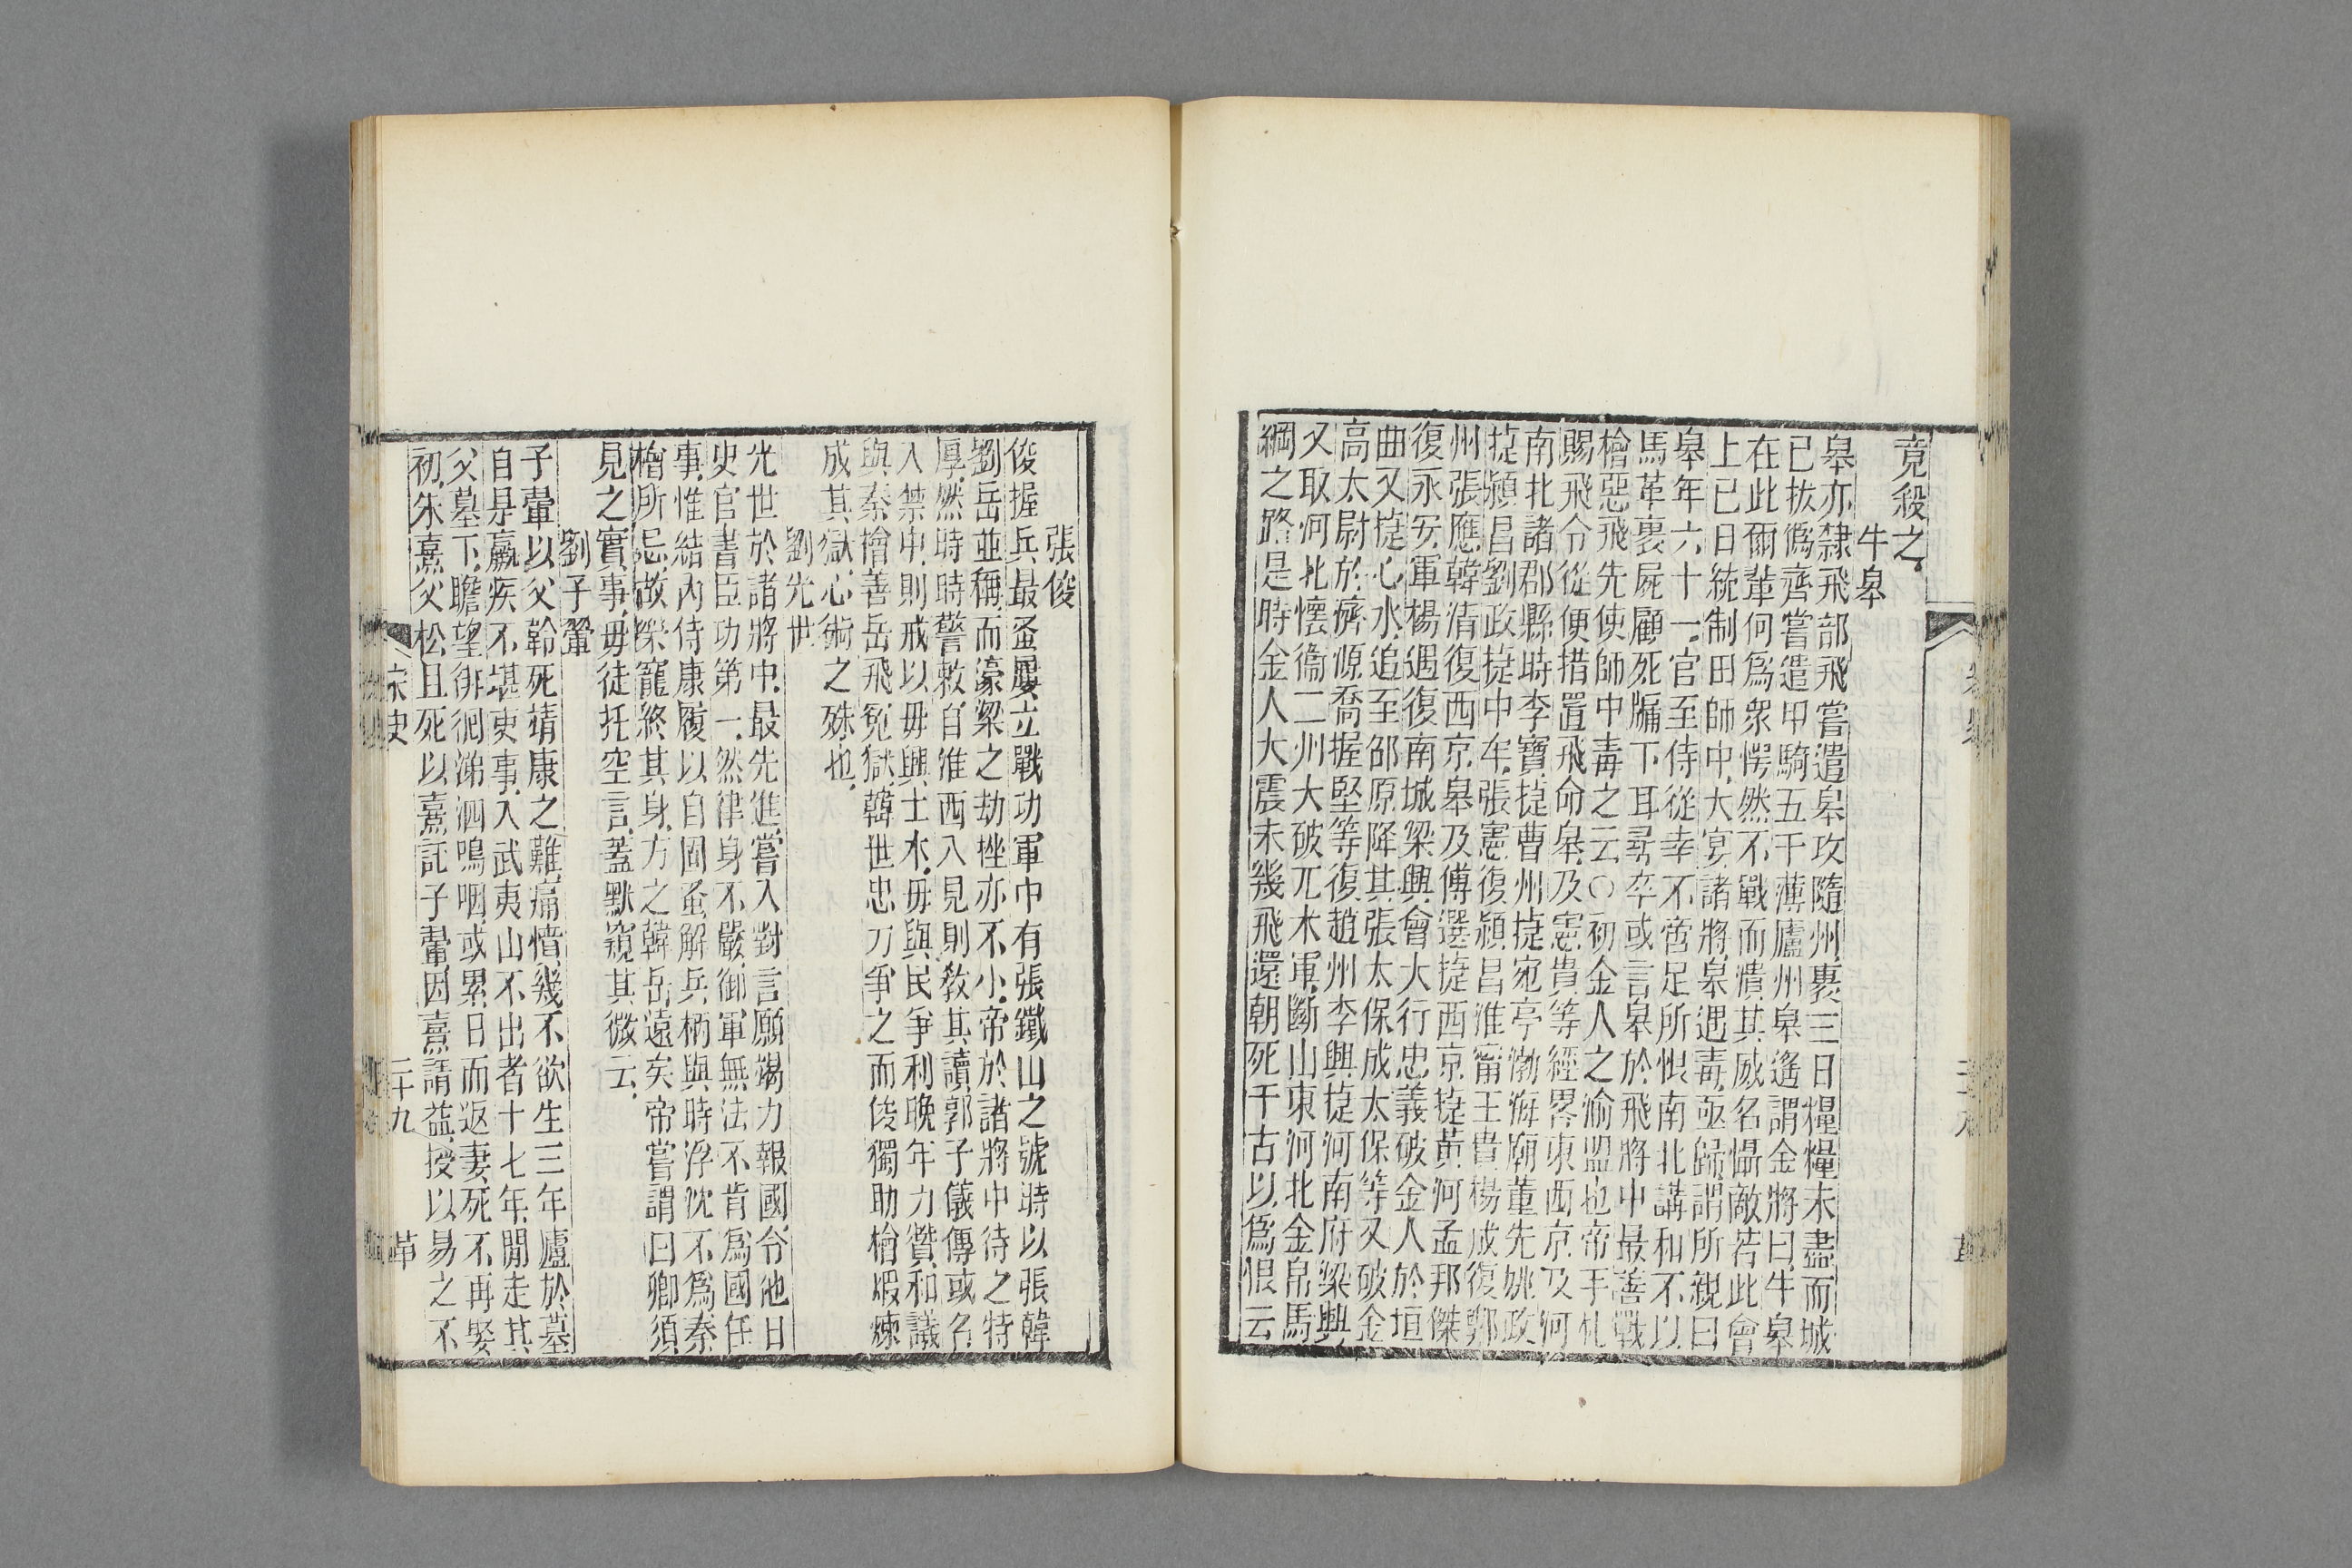 竟殺之
牛皋
皋亦隸飛部飛嘗遣皋攻隨州裹三日糧糧未盡而城
已拔僞齊嘗遣甲騎五千薄廬州皋遙謂金將曰牛皋
在此爾輩何爲衆愕然不戰而潰其威名懾敵若此會
上巳日統制田師中大宴諸將皋遇毒亟歸謂所親曰
皋年六十一官至侍從幸不啻足所恨南北講和不以
馬革裹屍顧死牖下耳尋卒或言皋於飛將中最善戰
檜惡飛先使師中毒之云〇初金人之渝盟也帝手札
賜飛令從便措置飛命皋及憲貴等經畧東西京及河
南北諸郡縣時李寶捷曹州捷宛亭渤海廟董先姚政
捷潁昌劉政捷中牟張憲復潁昌淮甯王貴楊成復鄭
州張應韓清復西京皋及傅選捷西京捷黃河孟邦傑
復永安軍楊遇復南城梁興會大行忠義破金人於垣
曲又捷心水追至邵原降其張太保成太保等又破金
高太尉於濟源喬握堅等復趙州李興捷河南府梁興
又取河北懷衞二州大破兀朮軍斷山東河北金帛馬
綱之路是時金人大震未幾飛還朝死千古以爲恨云
張俊
俊握兵最蚤屢立戰功軍中有張鐵山之號時以張韓
劉岳並稱而濠梁之劫挫亦不小帝於諸將中待之特
厚然時時警敕自淮西入見則敎其讀郭子儀傳或名
入禁中則戒以毋興土木毋與民爭利晚年力贊和議
與秦檜善岳飛冤獄韓世忠力爭之而俊獨助檜煅煉
成其獄心術之殊也
劉光世
光世於諸將中最先進嘗入對言願竭力報國令他日
史官書臣功第一然律身不嚴御軍無法不肯爲國任
事惟結內侍康履以自固蚤解兵柄與時浮沈不爲秦
檜所忌故榮寵終其身方之韓岳遠矣帝嘗謂曰卿須
見之實事毋徒托空言蓋默窺其微云
劉子翬
子翬以父韐死靖康之難痛憤幾不欲生三年廬於墓
自是羸疾不堪吏事入武夷山不出者十七年閒走其
父墓下瞻望徘徊涕泗嗚咽或累日而返妻死不再娶
初朱熹父松且死以熹託子翬因熹請益授以易之不
宋史
二十九